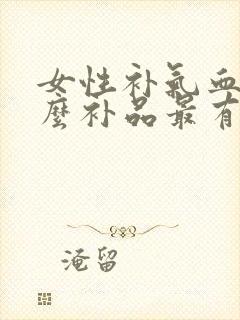 女性补氣血
麼补品最有
淹留